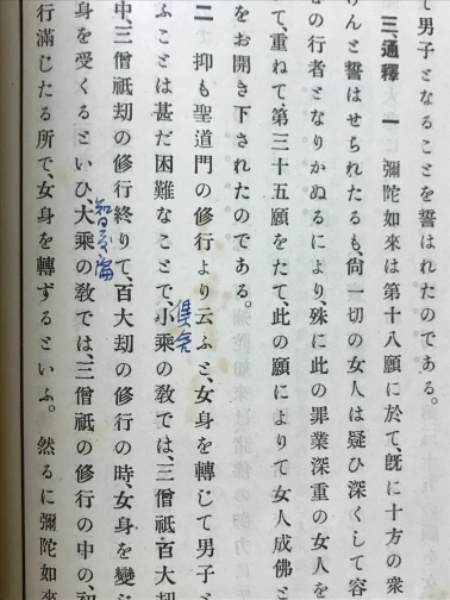 て男子となることを誓はれたのである。
三、通釋 一 彌陀如來は第十八願に於て、既に十方の衆
けんと誓はせられたるも、尙一切の女人は疑ひ深くして容
の行者となりかぬるにより、殊に此の罪業深重の女人を
て、重ねて、第三十五願をたて、此の願によりて女人成佛と
をお開き下されたのである。
二 抑も聖道門の修行より云ふと、女身を轉じて男子と
ふことは甚だ困難なことで、小乘の敎では、三僧祇百大劫
倶舍
中、三僧祇劫の修行終りて、百大劫の修行の時、女身を變じ
智度論
身を受くるといひ、大乘の敎では、三僧祇の修行の中の、初
行滿じたる所で、女身を轉ずるといふ。然るに彌陀如來